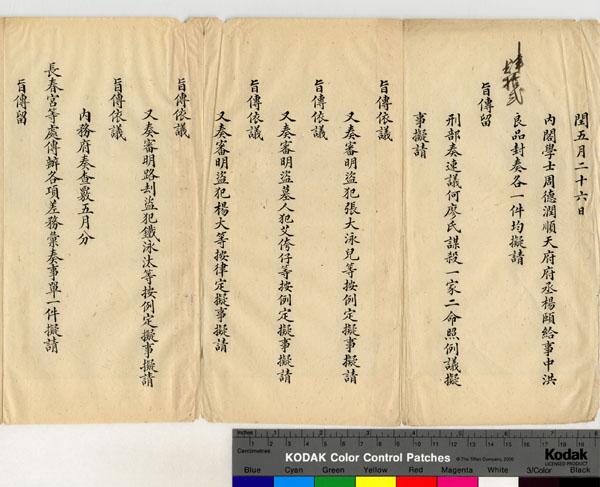 閏五月二十六日
內閣學士周德潤順天府府丞楊頤給事中洪
良品封奏各一件均擬請
旨傳留
刑部奏速議何廖氏謀殺一家二命照例議擬
事擬請
旨傳依議
又奏審明盜犯張大泳兒等按例定擬事擬請
旨傳依議
又奏審明盜墓人犯艾傍仔等按例定擬事擬請
旨傳依議
又奏審明盜犯楊大等按律定擬事擬請
旨傳依議
又奏審明路刦盜犯鐵泳汰等按例定擬事擬請
旨傳依議
內務府奏查覈五月分
長春宮等處傳辦各項差務彙奏事單一件擬請
旨傳留
Inches
Centimetres
KODAK Color Control Patches
© The Tiffen Company, 2000
Kodak
LICENSED PRODUCT
Blue Cyan Green Yellow Red Magenta White 3/Color Black